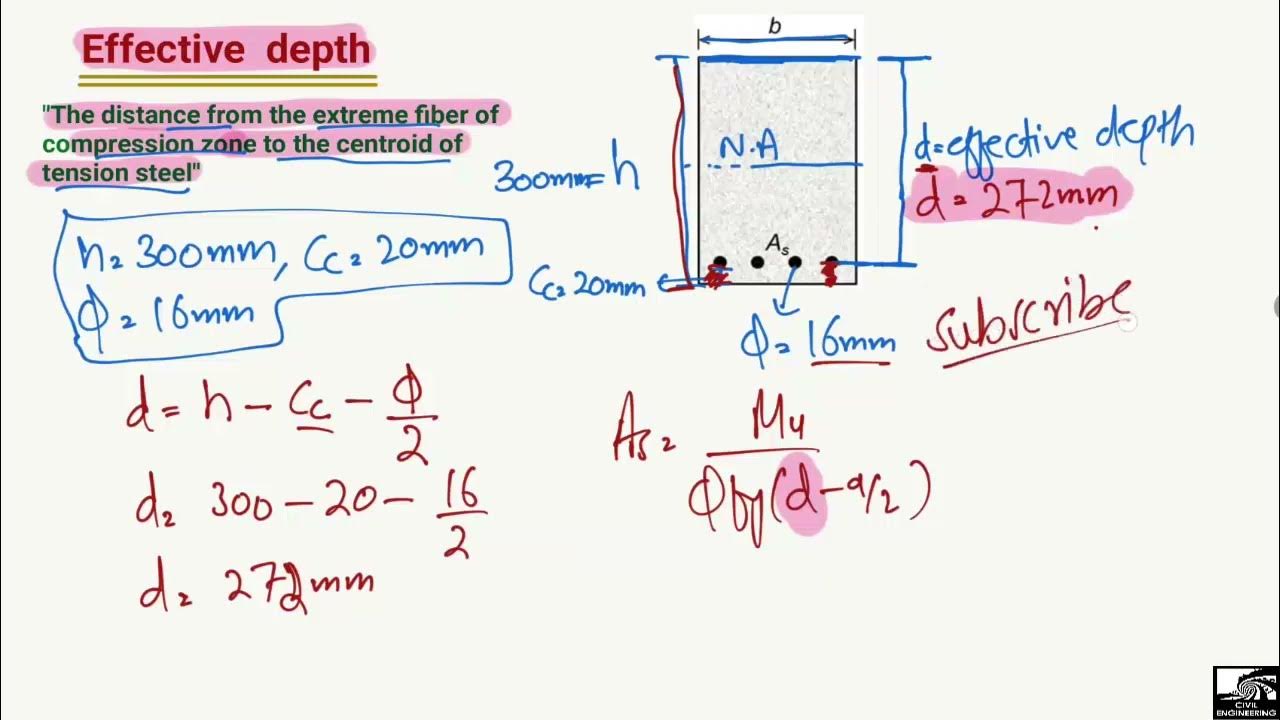 Effective depth
"The distance from the extreme fiber of
compression zone to the centroid of
tension steel"
h = 300mm, Cc = 20mm
ϕ = 16mm
d = h - Cc - ϕ/2
d = 300 - 20 - 16/2
d = 272mm
b
N.A
300mm = h
As
Cc = 20mm
ϕ = 16mm
d = effective depth
d = 272mm
subscribe
As = Mu / ϕfy(d - a/2)
CIVIL
ENGINEERING